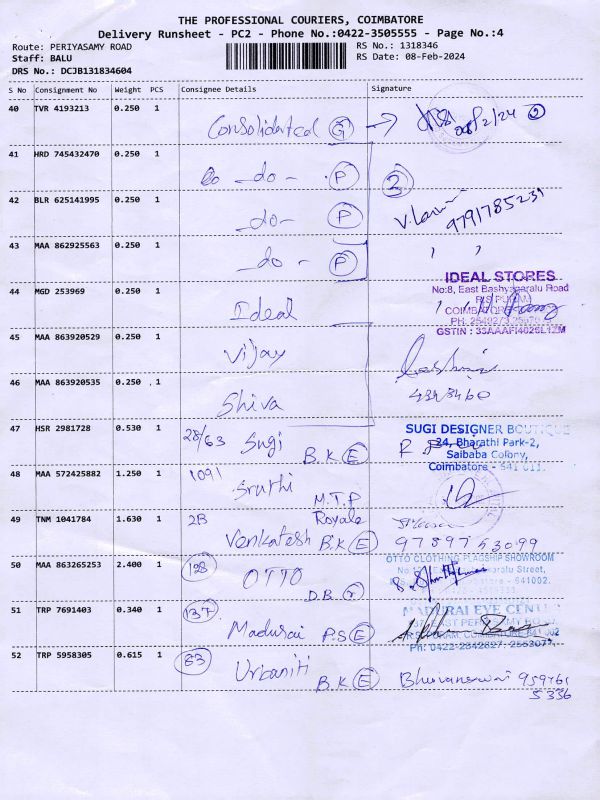 THE PROFESSIONAL COURIERS, COIMBATORE
Delivery Runsheet - PC2 - Phone No.:0422-3505555 - Page No.:4
Route: PERIYASAMY ROAD
RS No.: 1318346
Staff: BALU
RS Date: 08-Feb-2024
DRS No.: DCJB131834604
S No Consignment No Weight PCS Consignee Details Signature
40 TVR 4193213 0.250 1
Consolidated G → 08/2/24 2
41 HRD 745432470 0.250 1
-do- P 2
42 BLR 625141995 0.250 1
-do- P 9791785231
43 MAA 862925563 0.250 1
-do- P
IDEAL STORES
44 MGD 253969 0.250 1
No:8, East Bashyagaralu Road
Ideal
COIMBATORE
GSTIN : 33AAAFI4026L1ZM
45 MAA 863920529 0.250 1
Vijay
46 MAA 863920535 0.250 1
Shiva
47 HSR 2981728 0.530 1
28/63 Sugi B.K E
SUGI DESIGNER BOUTIQUE
24, Bharathi Park-2,
Saibaba Colony,
Coimbatore - 641 011.
48 MAA 572425882 1.250 1
1091 Sruthi M.T.P
49 TNM 1041784 1.630 1
2B Royale
Venkatesh B.K E 9789753099
50 MAA 863265253 2.400 1
OTTO CLOTHING FLAGSHIP SHOWROOM
128 OTTO D.B G
Coimbatore - 641002.
51 TRP 7691403 0.340 1
MADURAI EYE CENTRE
137 Madurai P.S E
EAST PERIYASAMY ROAD
R.S. PURAM, COIMBATORE-641 002
Ph: 0422-2542627, 2553077
52 TRP 5958305 0.615 1
83 Urbaniti B.K E
Bhuvaneswari 959761
5336